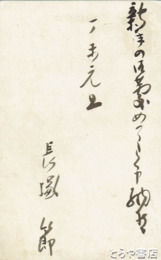 新年の御慶めでたく申納候
丁未元旦
長塚節
とらや書店